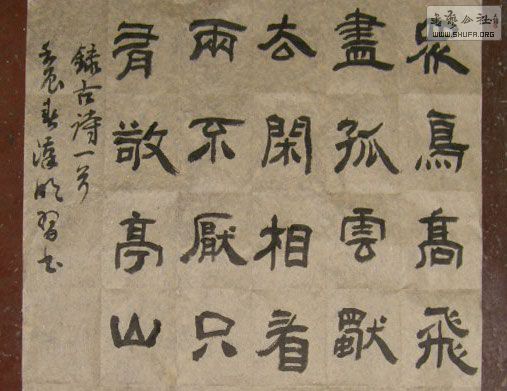 众鳥高飛
盡孤雲獨
去閑相看
兩不厭只
有敬亭山
錄古詩一首
壬辰春明習书
書藝公社
WWW.SHUFA.ORG